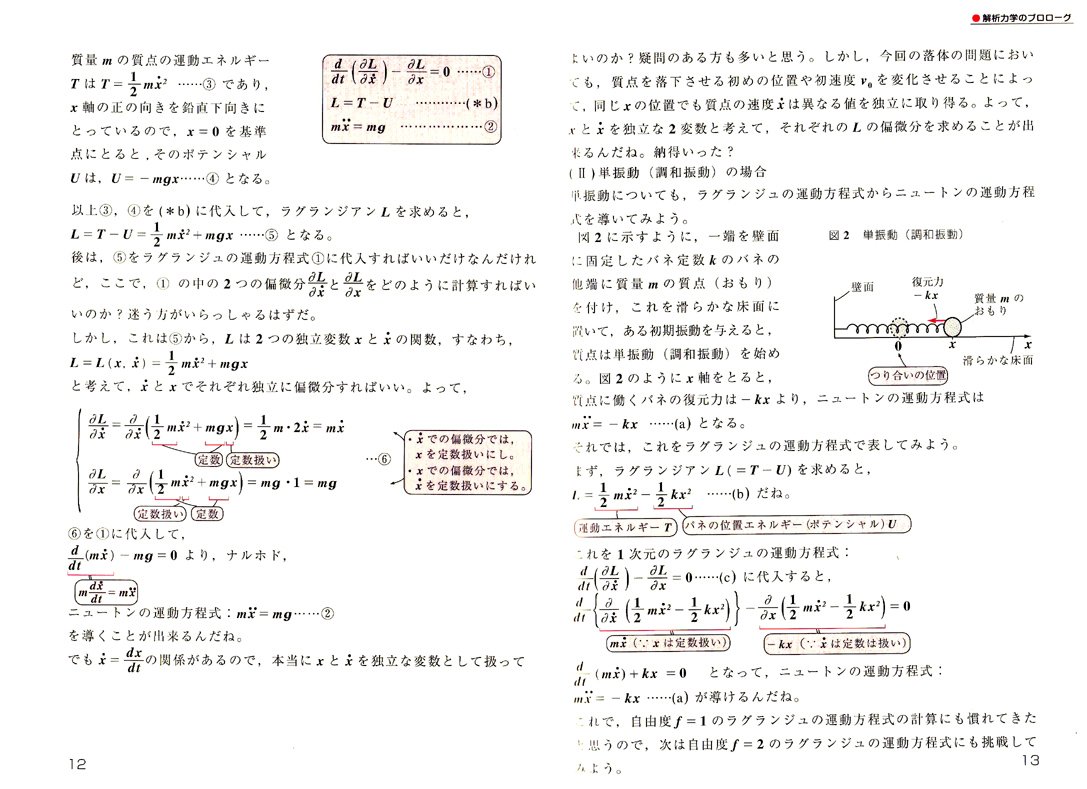 ●解析力学のプロローグ
質量 m の質点の運動エネルギー
T は T = 1/2 mẋ² ……③ であり,
x 軸の正の向きを鉛直下向きに
とっているので, x = 0 を基準
点にとると, そのポテンシャル
U は, U = − mgx……④ となる。
d/dt (∂L/∂ẋ) − ∂L/∂x = 0 ……①
L = T − U …………(*b)
mẍ = mg …………………②
以上③, ④を (*b) に代入して, ラグランジアン L を求めると,
L = T − U = 1/2 mẋ² + mgx ……⑤ となる。
後は, ⑤をラグランジュの運動方程式①に代入すればいいだけなんだけれ
ど, ここで, ① の中の 2 つの偏微分 ∂L/∂ẋ と ∂L/∂x をどのように計算すればい
いのか？迷う方がいらっしゃるはずだ。
しかし, これは⑤から, L は 2 つの独立変数 x と ẋ の関数, すなわち,
L = L (x, ẋ) = 1/2 mẋ² + mgx
と考えて, ẋ と x でそれぞれ独立に偏微分すればいい。よって,
∂L/∂ẋ = ∂/∂ẋ (1/2 mẋ² + mgx) = 1/2 m・2ẋ = mẋ
定数 定数扱い
∂L/∂x = ∂/∂x (1/2 mẋ² + mgx) = mg・1 = mg
定数扱い 定数
…⑥
・ẋ での偏微分では,
x を定数扱いにし。
・x での偏微分では,
ẋ を定数扱いにする。
⑥を①に代入して,
d/dt (mẋ) − mg = 0 より, ナルホド,
m dẋ/dt = mẍ
ニュートンの運動方程式：mẍ = mg……②
を導くことが出来るんだね。
でも ẋ = dx/dt の関係があるので, 本当に x と ẋ を独立な変数として扱って
12
よいのか？疑問のある方も多いと思う。しかし, 今回の落体の問題におい
ても, 質点を落下させる初めの位置や初速度 v₀ を変化させることによっ
て, 同じ x の位置でも質点の速度 ẋ は異なる値を独立に取り得る。よって,
x と ẋ を独立な 2 変数と考えて, それぞれの L の偏微分を求めることが出
来るんだね。納得いった？
(Ⅱ) 単振動（調和振動）の場合
単振動についても, ラグランジュの運動方程式からニュートンの運動方程
式を導いてみよう。
図 2 に示すように, 一端を壁面
に固定したバネ定数 k のバネの
他端に質量 m の質点（おもり）
を付け, これを滑らかな床面に
置いて, ある初期振動を与えると,
質点は単振動（調和振動）を始め
る。図 2 のように x 軸をとると,
図 2 単振動（調和振動）
壁面
復元力
−kx
質量 m の
おもり
0
x
x
滑らかな床面
つり合いの位置
質点に働くバネの復元力は − kx より, ニュートンの運動方程式は
mẍ = − kx ……(a) となる。
それでは, これをラグランジュの運動方程式で表してみよう。
まず, ラグランジアン L ( = T − U) を求めると,
L = 1/2 mẋ² − 1/2 kx² ……(b) だね。
運動エネルギー T バネの位置エネルギー(ポテンシャル) U
これを 1 次元のラグランジュの運動方程式：
d/dt (∂L/∂ẋ) − ∂L/∂x = 0……(c) に代入すると,
d/dt {∂/∂ẋ (1/2 mẋ² − 1/2 kx²)} − ∂/∂x (1/2 mẋ² − 1/2 kx²) = 0
mẋ (∵ x は定数扱い) − kx (∵ ẋ は定数は扱い)
d/dt (mẋ) + kx = 0 となって, ニュートンの運動方程式：
mẍ = − kx ……(a) が導けるんだね。
これで, 自由度 f = 1 のラグランジュの運動方程式の計算にも慣れてきた
と思うので, 次は自由度 f = 2 のラグランジュの運動方程式にも挑戦して
みよう。
13